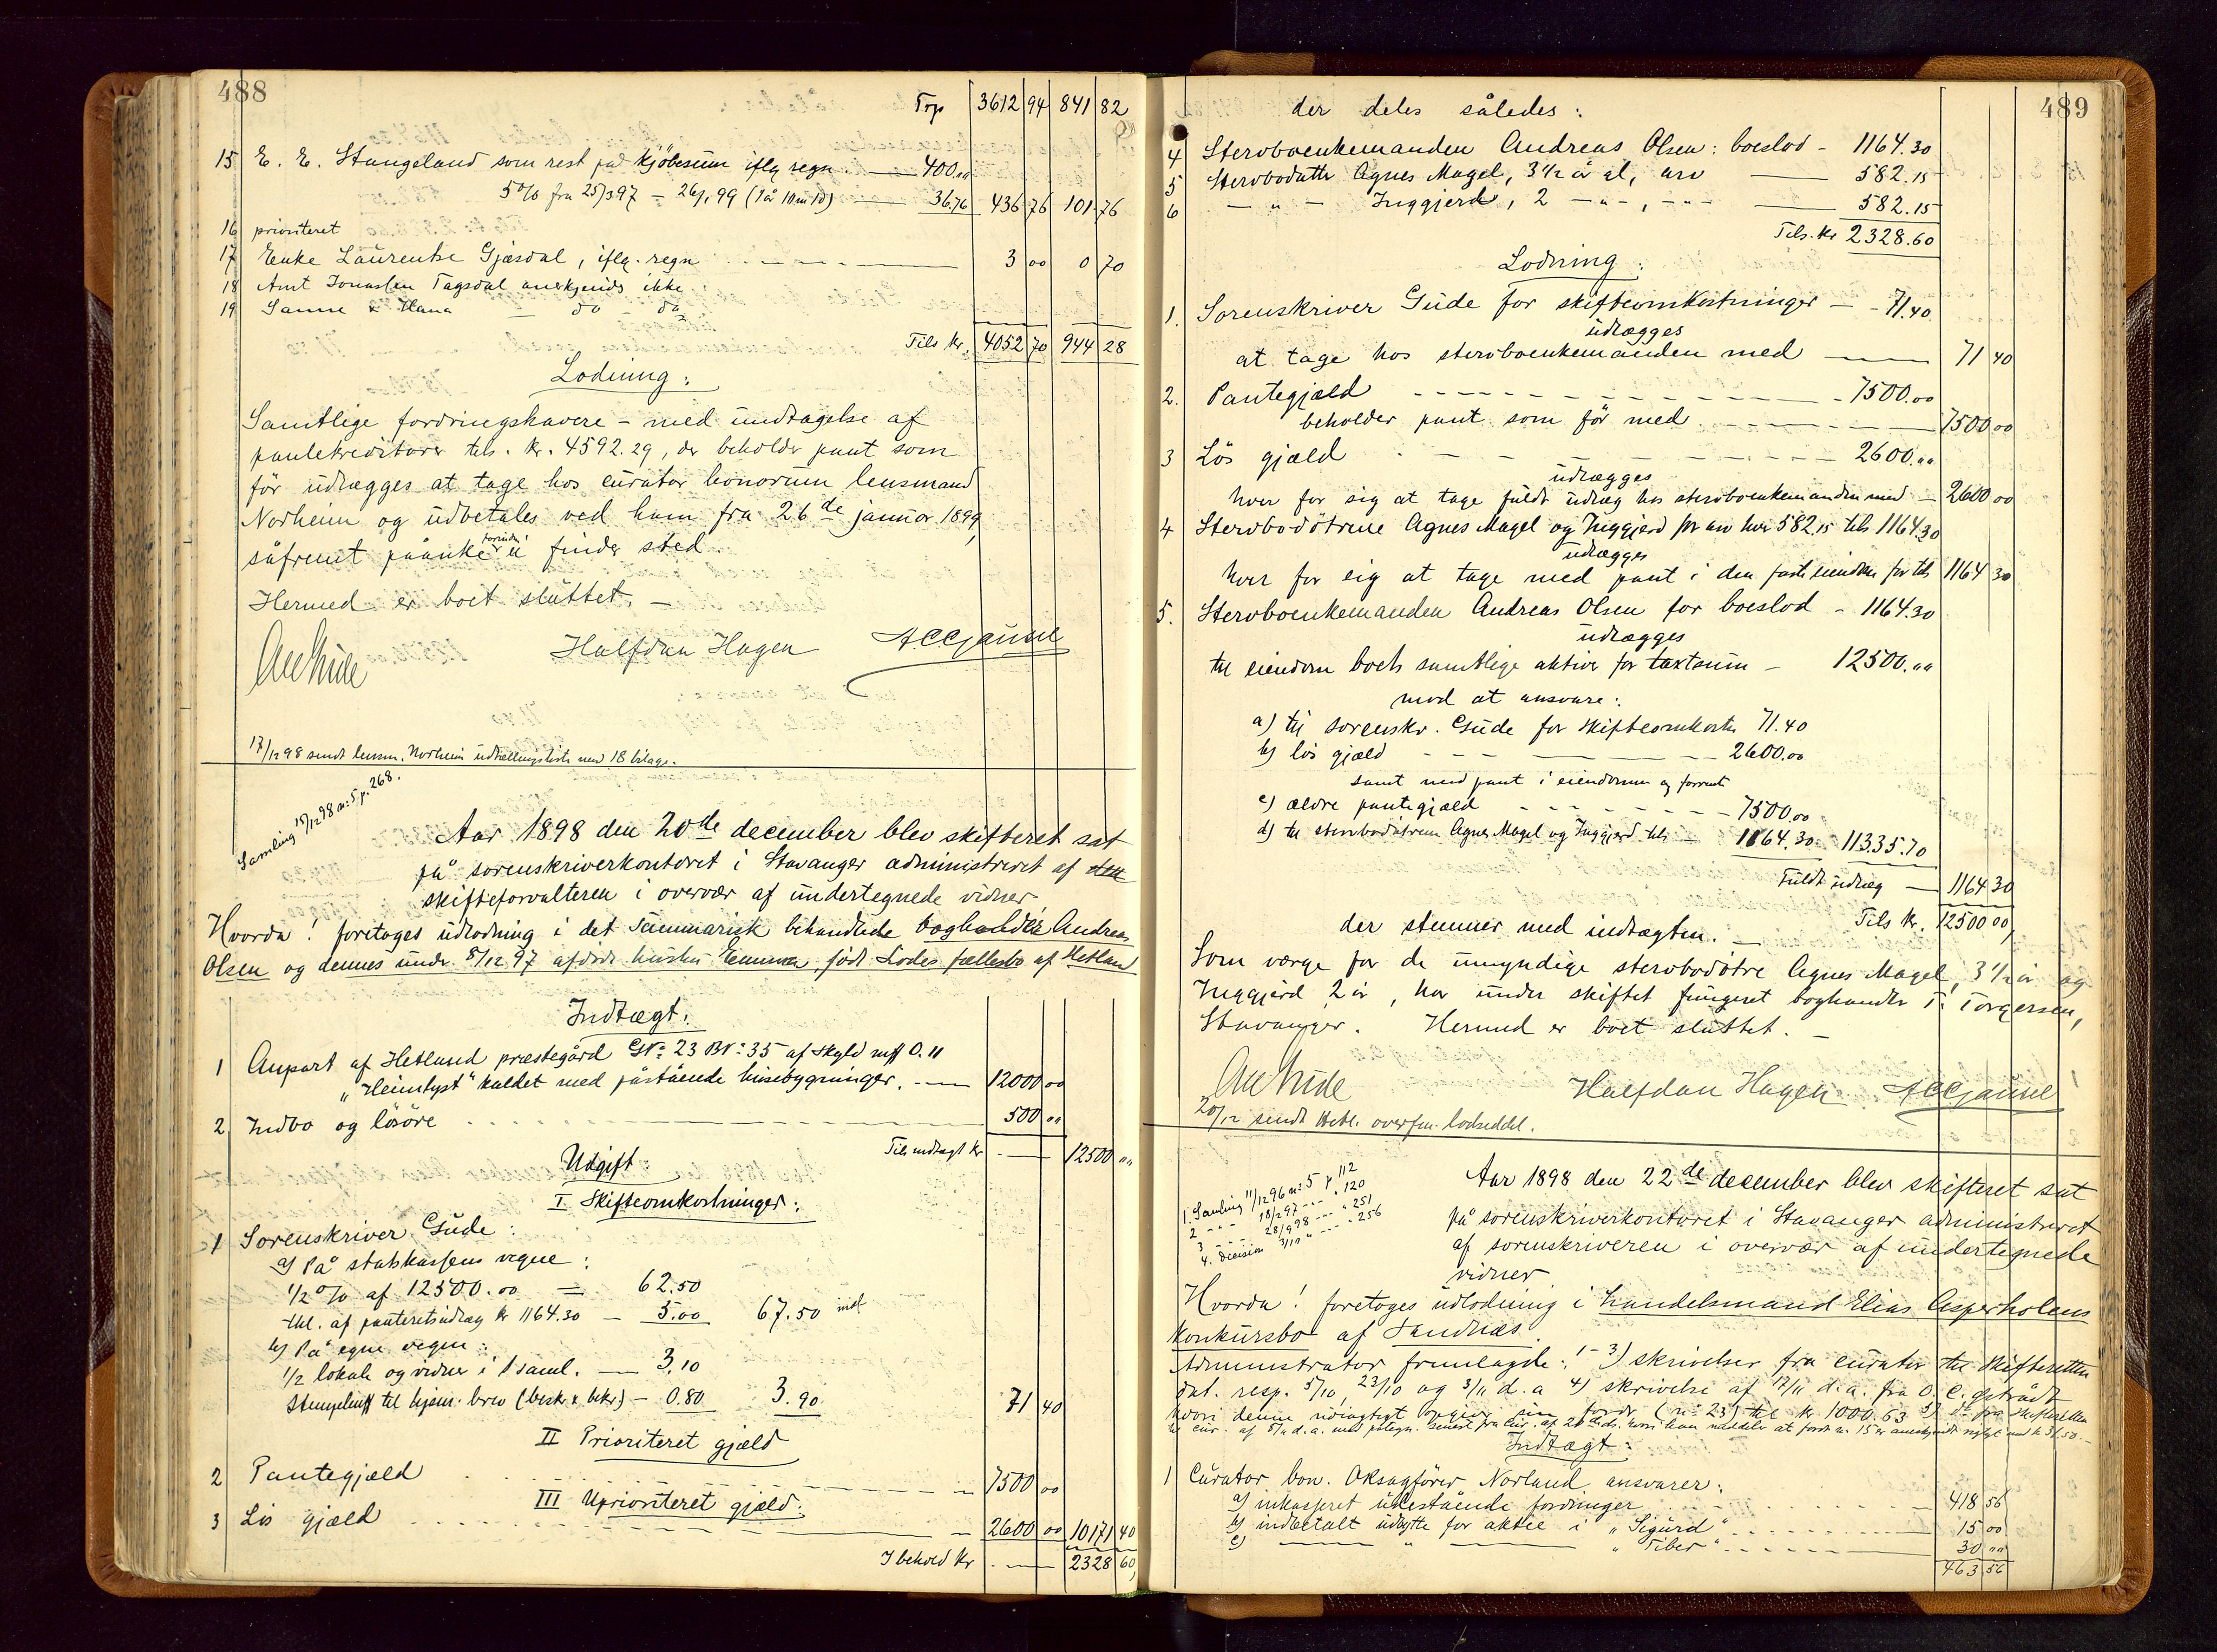 488
Trp 3612 94 841 82
15 E. E. Stangeland som rest på kjöbesum iflg regn. — 400.00
5 % fra 25/3 97 — 26/1 99 (1 år 10 m 1 d) — 36.76 436 76 101 76
16 prioriteret
17 Enke Laurentse Gjesdal, iflg. regn — 3 00 0 70
18 Arnt Jonassen Tagsdal anerkjendes ikke
19 Sanne & Hana — do — do
Tils kr. 4052 70 944 28
Lodning:
Samtlige fordringshavere – med undtagelse af
pantekreditorer tils. kr. 4592.29, der beholder pant som
för udlægges at tage hos curator bonorum lensmand
Norheim og udbetales ved ham fra 26de januar 1899,
såfremt påanke forinden ei finder sted.
Hermed er boet sluttet. —
Halfdan Hagen
17/12 98 sendt lensm. Norheim udtællingsliste med 18 bilage.
Samling 15/12 98 n: 5 p. 268.
Aar 1898 den 20de december blev skifteret sat
på sorenskriverkontoret i Stavanger administreret af
skifteforvalteren i overvær af undertegnede vidner
Hvorda! foretoges udlodning i det summarisk behandlede boghandler Andreas
Olsen og dennes under 8/12 97 afdöde hustru Emma född Lodes fællesbo af Hetland
Indtægt:
1 Anpart af Hetland præstegård GN: 23 BN: 35 af skyld mk 0.11
"Heimlyst" kaldet med påstående husebygninger. — 12000 00
2 Indbo og lösöre — 500 00
Tils indtægt kr — 12500 00
Udgift:
I. Skifteomkostninger:
1 Sorenskriver Gude:
a) På statskassens vegne:
1/2 % af 12500.00 = 62.50
thl. af panteretsudlæg kr 1164.30 — 5.00 67.50
b) På egne vegne:
1/2 lokale og vidner i 1 saml. — 3.10
Stempelmk til hjem. brev (besk. & bek.) — 0.80 3.90 71 40
II Prioriteret gjæld
2 Pantegjæld — 7500 00
III Uprioriteret gjæld:
3 Lös gjæld — 2600 00 10171 40
I behold kr. — 2328 60
489
der deles således:
4 Sterboenkemanden Andreas Olsen: boeslod — 1164.30
5 Sterbodatter Agnes Magel, 3 1/2 år gl, arv — 582.15
6 — " — Inggjerd, 2 — " —, — " — 582.15
Tils. kr 2328.60
Lodning:
1. Sorenskriver Gude for skifteomkostninger — 71.40
udlægges
at tage hos sterboenkemanden med — 71 40
2. Pantegjæld — 7500.00
beholder pant som för med — 7500 00
3 Lös gjæld — 2600.00
udlægges
hver for sig at tage fuldt udlæg hos sterboenkemanden med — 2600 00
4 Sterbodötrene Agnes Magel og Inggjerd for arv hver 582.15 tils 1164.30
udlægges
hver for sig at tage med pant i den faste eiendom for tils 1164 30
5. Sterboenkemanden Andreas Olsen for boeslod — 1164.30
udlægges
til eiendom boets samtlige aktiver for taxtsum — 12500.00
mod at ansvare:
a) til sorenskr. Gude for skifteomkostn 71.40
b) lös gjæld — 2600.00
samt med pant i eiendommen og forrente
c) ældre pantegjæld — 7500.00
d) til sterbodötrene Agnes Magel og Inggjerd tils — 1164.30 11335.70
Fuldt udlæg — 1164 30
Tils kr. 12500 00
der stemmer med indtægten. —
Som værge for de umyndige sterbodötre Agnes Magel, 3 1/2 år og
Inggjerd 2 år, har under skiftet fungeret boghandler T. Torgersen,
Stavanger. Hermed er boet sluttet. —
Halfdan Hagen
20/12 sendt Hetl. overfm. lodseddel.
1. Samling 11/12 96 n: 5 p 112
2 — " — 18/2 97 — " — 120
3 — " — 28/9 98 — " — 251
4. Decision 3/10 " — " — 256
Aar 1898 den 22de december blev skifteret sat
på sorenskriverkontoret i Stavanger administreret
af sorenskriveren i overvær af undertegnede
vidner
Hvorda! foretoges udlodning i handelsmand Elias Asperholens
konkursbo af Sandnæs.
Administrator fremlagde: 1–3) skrivelser fra curator til skifteretten
dat. resp. 5/10, 23/10 og 3/11 d. a 4) skrivelse af 17/11 d. a. fra O. C.
hvori denne opgiver sin fordr. (n: 23) til kr. 1000.63 5) do fra skifteretten
til cur. af 8/11 d. a. med senest fra cur. af 20 hvori han meddeler at fordr n. 15 er anerkjendt
Indtægt:
1 Curator bon. Oksagförer Norland ansvarer:
a) inkasseret udestående fordringer — 418 56
b) indbetalt udbytte for aktie i "Sigurd" — 15 00
c) — " — " "Tiber" — 30 00
463 56